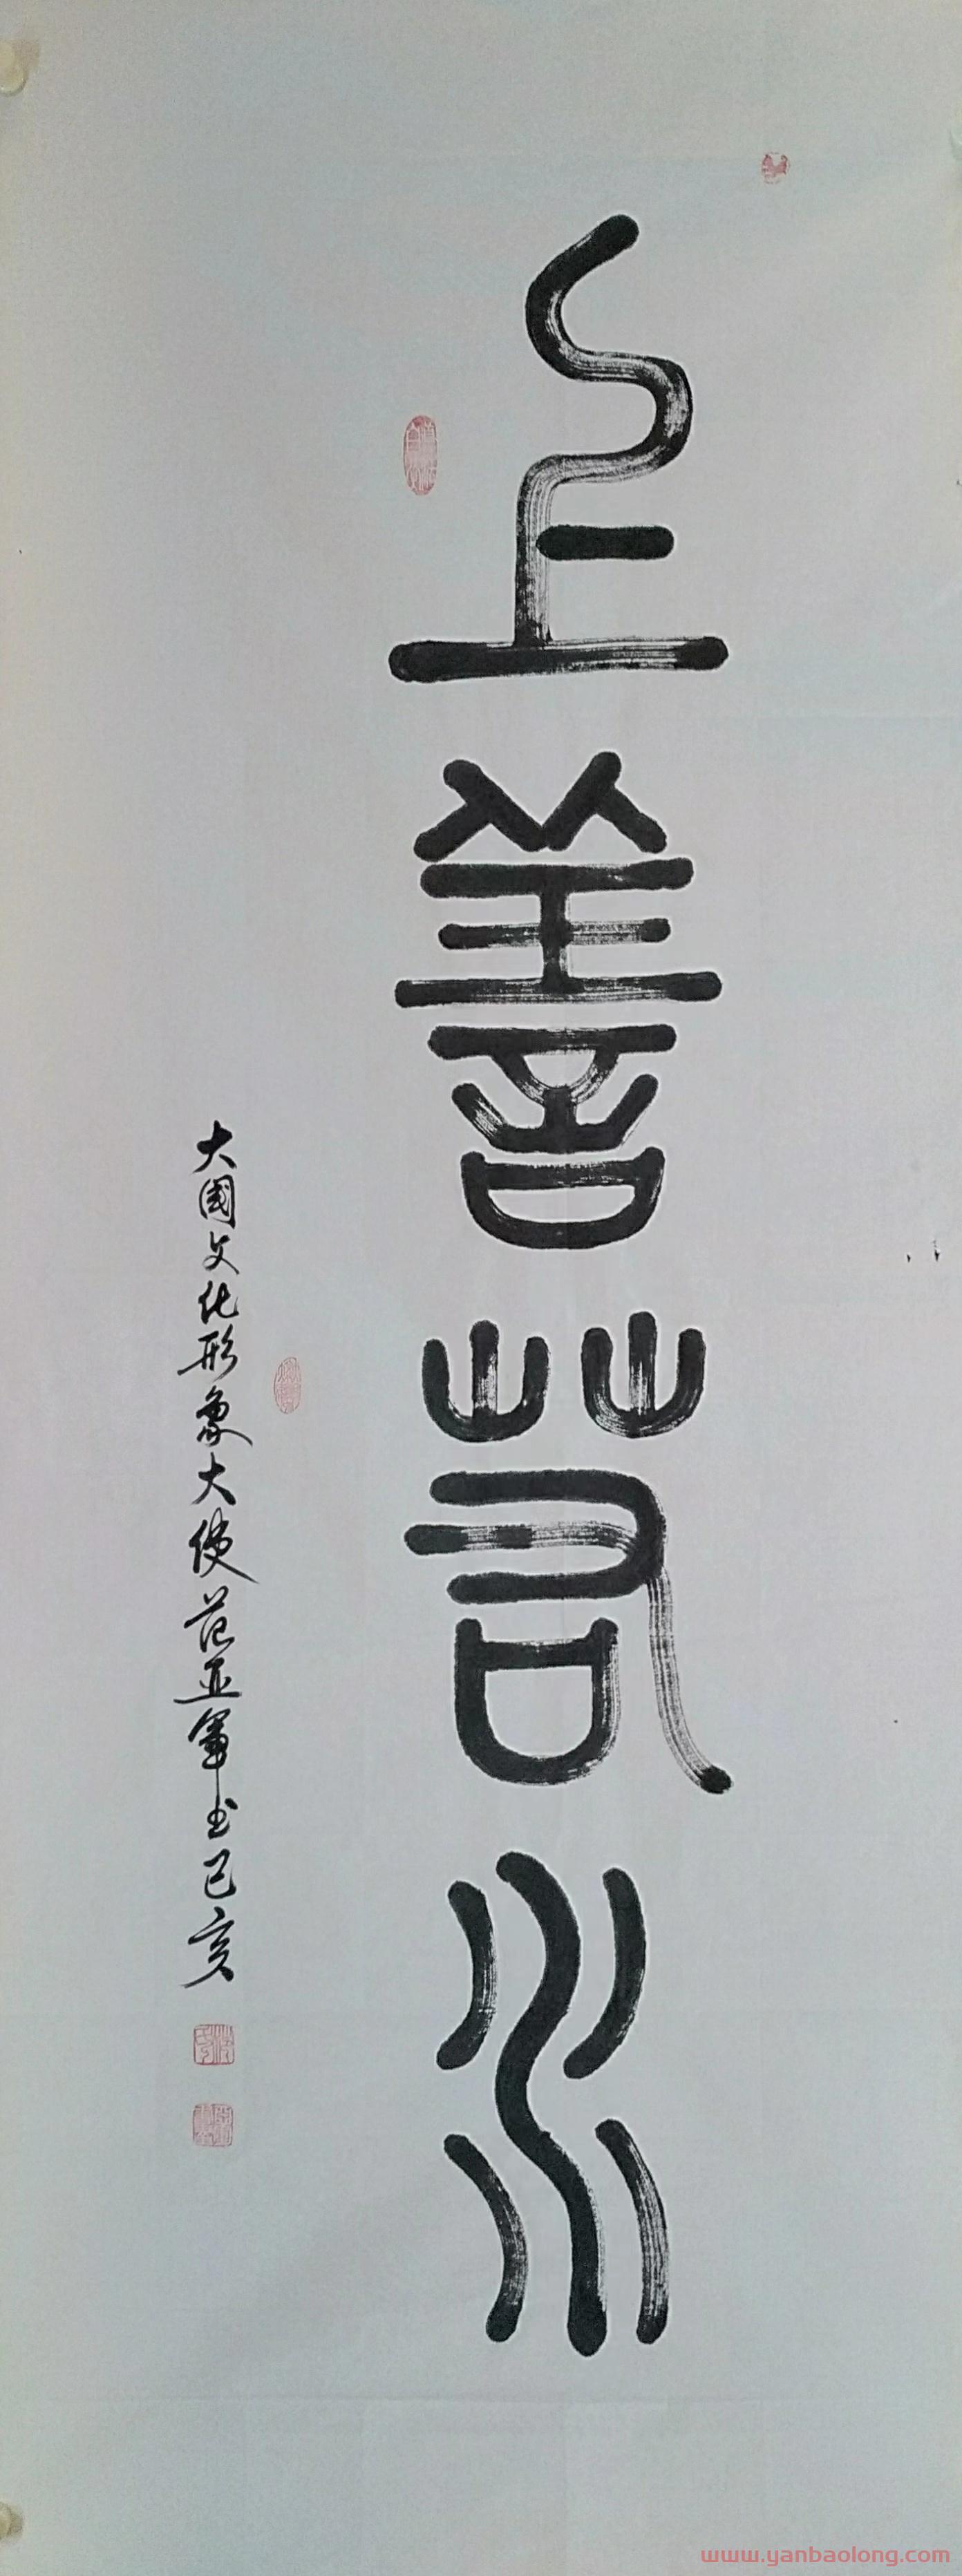 上善若水
大国文化形象大使范亚军书己亥
www.yanbaolong.com